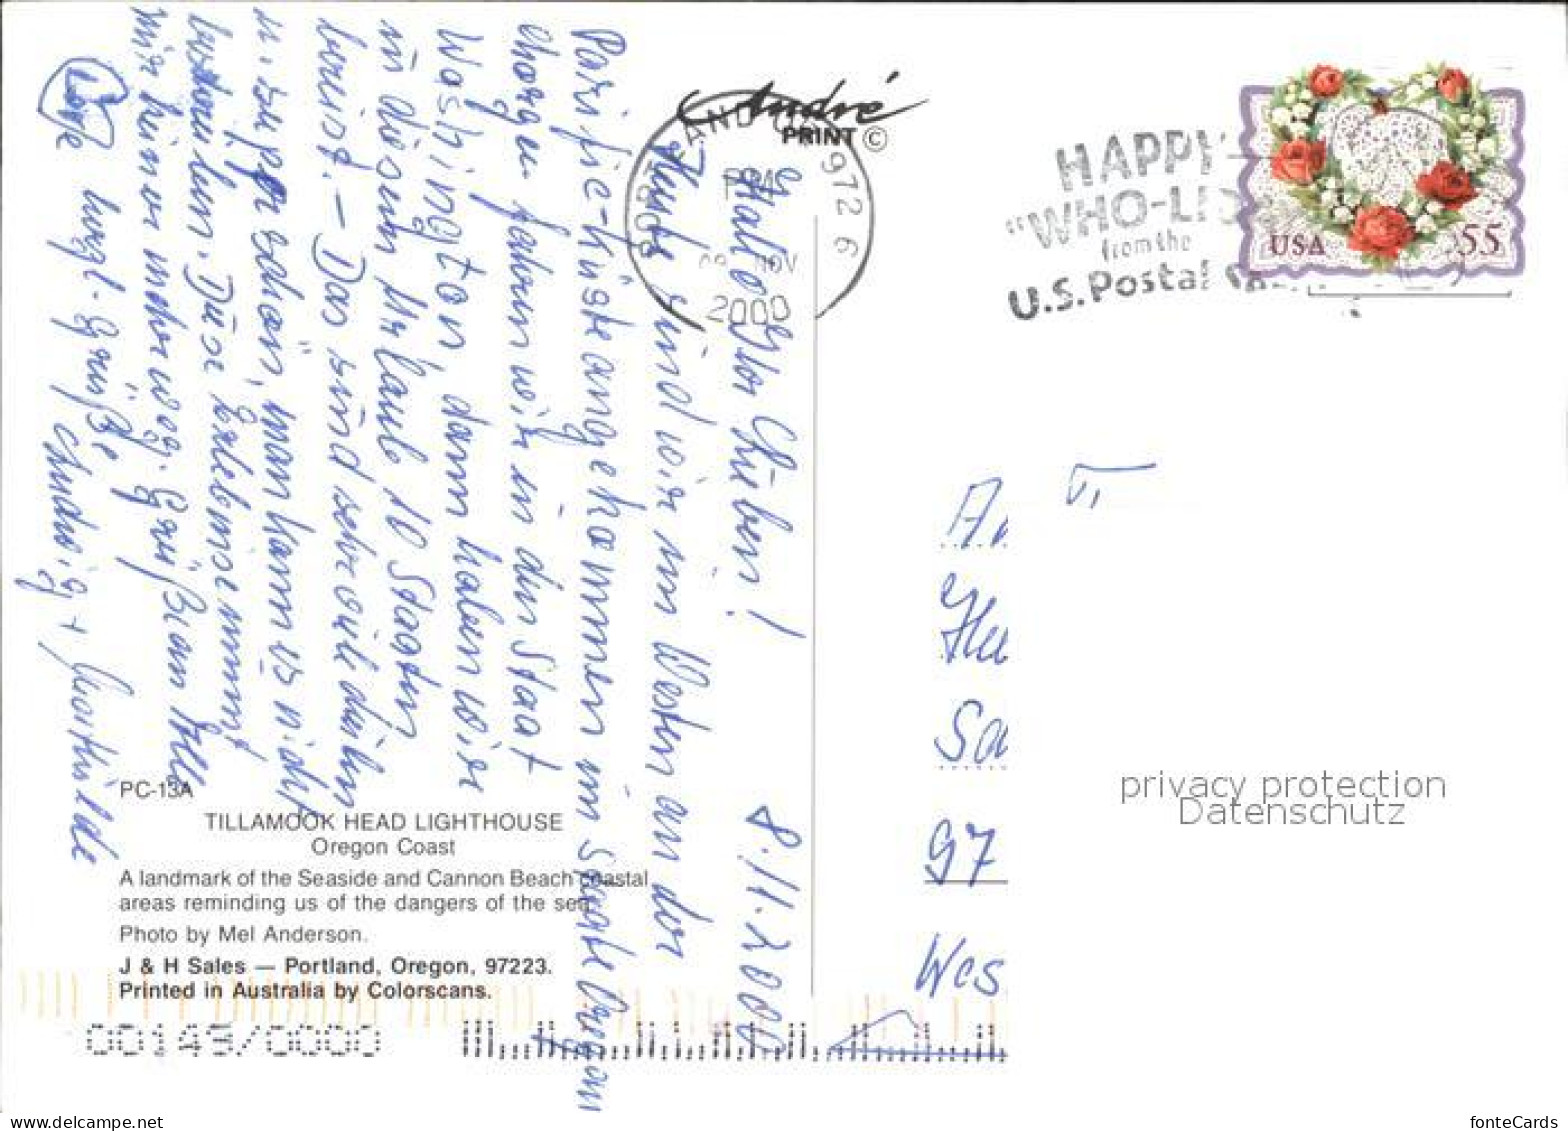 André
PRINT ©
PORTLAND OR 972 6
PM
08 NOV
2000
HAPPY
"WHO-LI
from the
U.S. Postal Se
USA
55
8.11.2000
Hallo Ihr Lieben!
Heute sind wir im Westen an der
Pazifie-Küste angekommen im Staate Oregon
Morgen fahren wir in den Staat
Washington, dann haben wir
in diesem Urlaub 10 Staaten
bereist. – Das sind sehr viele
u. super schön, man kann es nicht
Diese Erlebnisse nimmt
mir keiner mehr weg. Grüß
Liebe herzl. Grüße Ludwig + Mathilde
PC-13A
TILLAMOOK HEAD LIGHTHOUSE
Oregon Coast
A landmark of the Seaside and Cannon Beach coastal
areas reminding us of the dangers of the sea.
Photo by Mel Anderson.
J & H Sales — Portland, Oregon, 97223.
Printed in Australia by Colorscans.
97
Wes
privacy protection
Datenschutz
www.delcampe.net
fonteCards